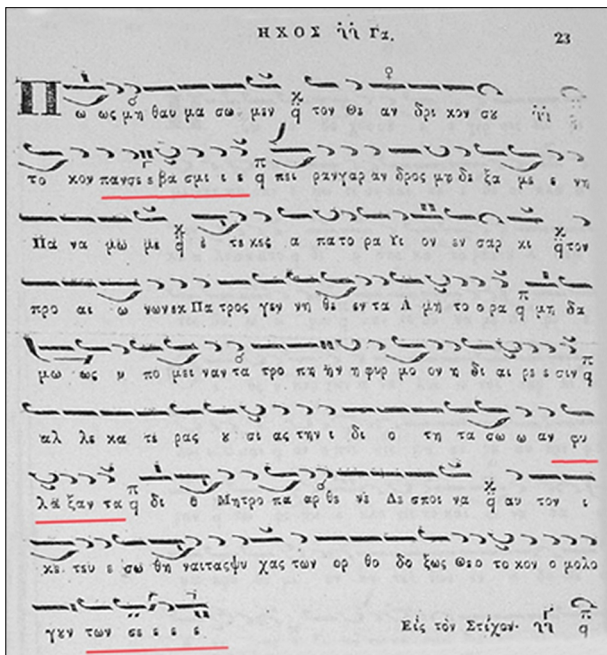 ΗΧΟΣ ἦ Γα. 23
Πω ως μη θαυ μα σω μεν τον Θε αν δρι κον σȣ
το κον πανσε ε βα σμι ι ε πει ρανγαρ αν δρος μη δε ξα με ε νη
Πα να μω με ε τεκες α πατο ρα Υι ον εν σαρ κι τον
προ αι ω νωνεκ Πα τρος γεν νη θε εν τα Α μη το ο ρα μη δα
μω ως υ πο μει ναν τα τρο πη ην η φυρ μο ον η δι αι ρε ε σιν
αλ λε κα τε ρας ȣ σι ας την ι δι ο τη τα σω ω αν φυ
λα ξαν τα δι ο Μητρο πα αρ θε νε Δε σποι να αυ τον ι
κε τευ ε σω θη ναι τας ψυ χας των ορ θο δο ξως Θεο το κον ο μολο
γȣν των σε ε ε ε. Εἰς τὸν Στίχον.